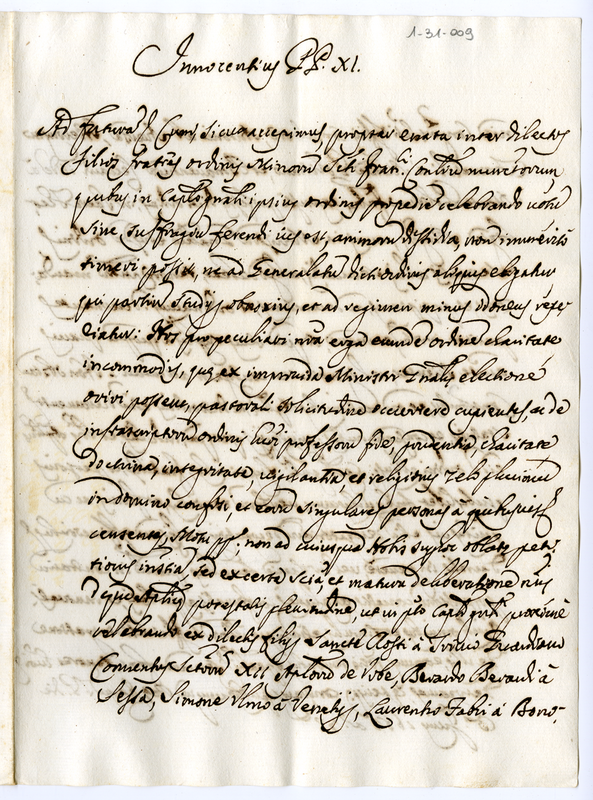 1-31-009
Innocentius PP. XI.
Ad futurā Cum, sicut accepimus, propter exorta inter dilectos
filios fratres ordinis Minorū Sti Franci Conventualium nuncupatorum
quibus in Caplo gnali ipsius ordinis propediē celebrando votū
sive suffragiū ferendi ius est, animorū dissidia, non immerito
timeri possit, ne ad Generalatū dicti ordinis aliquis eligatur
qui partium studijs obnoxius, et ad regimen minus idoneus repe-
riatur: Nos pro peculiari nra erga eundē ordinē charitate
incommodis, quę ex improvida Ministri Gnalis electione
oriri possent, pastorali sollicitudine occurrere cupientes, ac de
infrascriptorū ordinis hmoi professorū fide, prudentia, charitate
doctrina, integritate, vigilantia, et religionis zelo plurimū
in Domino confisi, et eorū singulares personas a quibusvis
censentes, Motu pp°, non ad cuiusquā Nobis super hoc oblatę peti-
tionis instātiā sed ex certa sciā, et matura deliberatione nris
deque Aplicę potestatis plenitudine, ut in pto Caplo gnli proximè
celebrando ex dilectis filijs Sancte Rosti à
Conventus Sctorū XII Aplorū de Urbe, Berardo Berardi à
Sessa, Simone Ulmo à Venetijs, Laurentio Fabri à Bono-